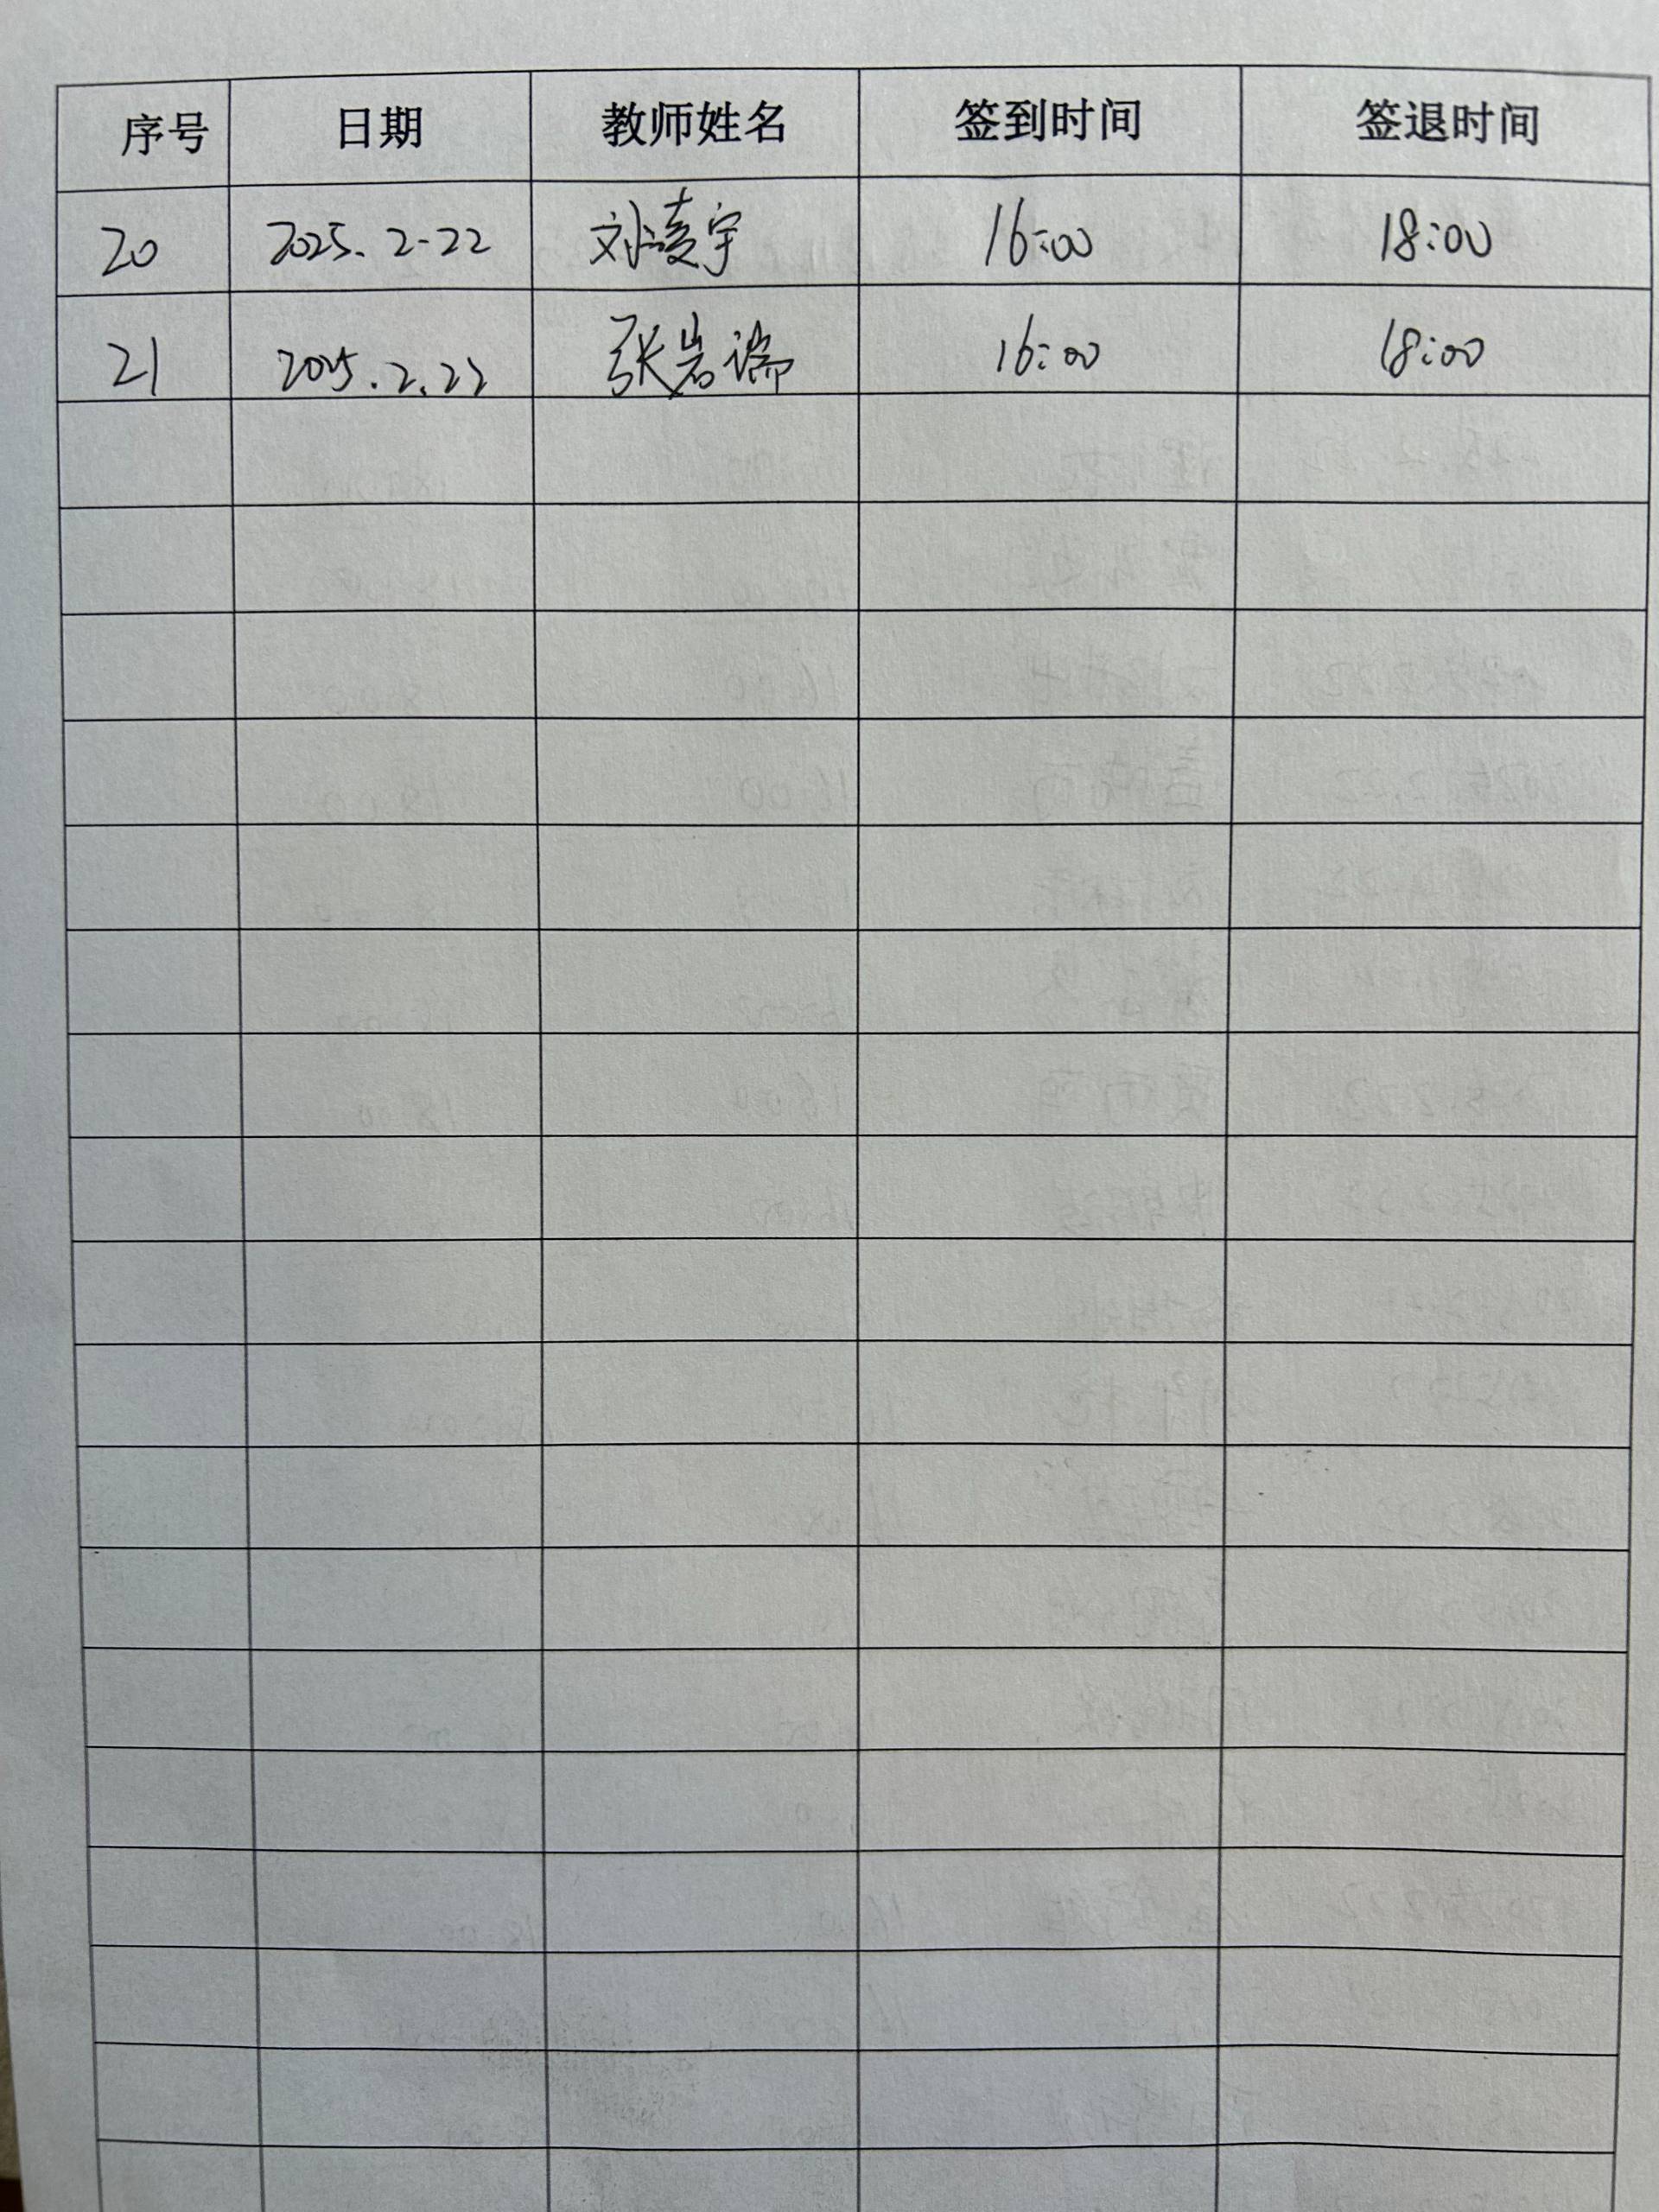 序号 日期 教师姓名 签到时间 签退时间
20 2025.2-22 刘凌宇 16:00 18:00
21 2025.2.22 张岩端 16:00 18:00